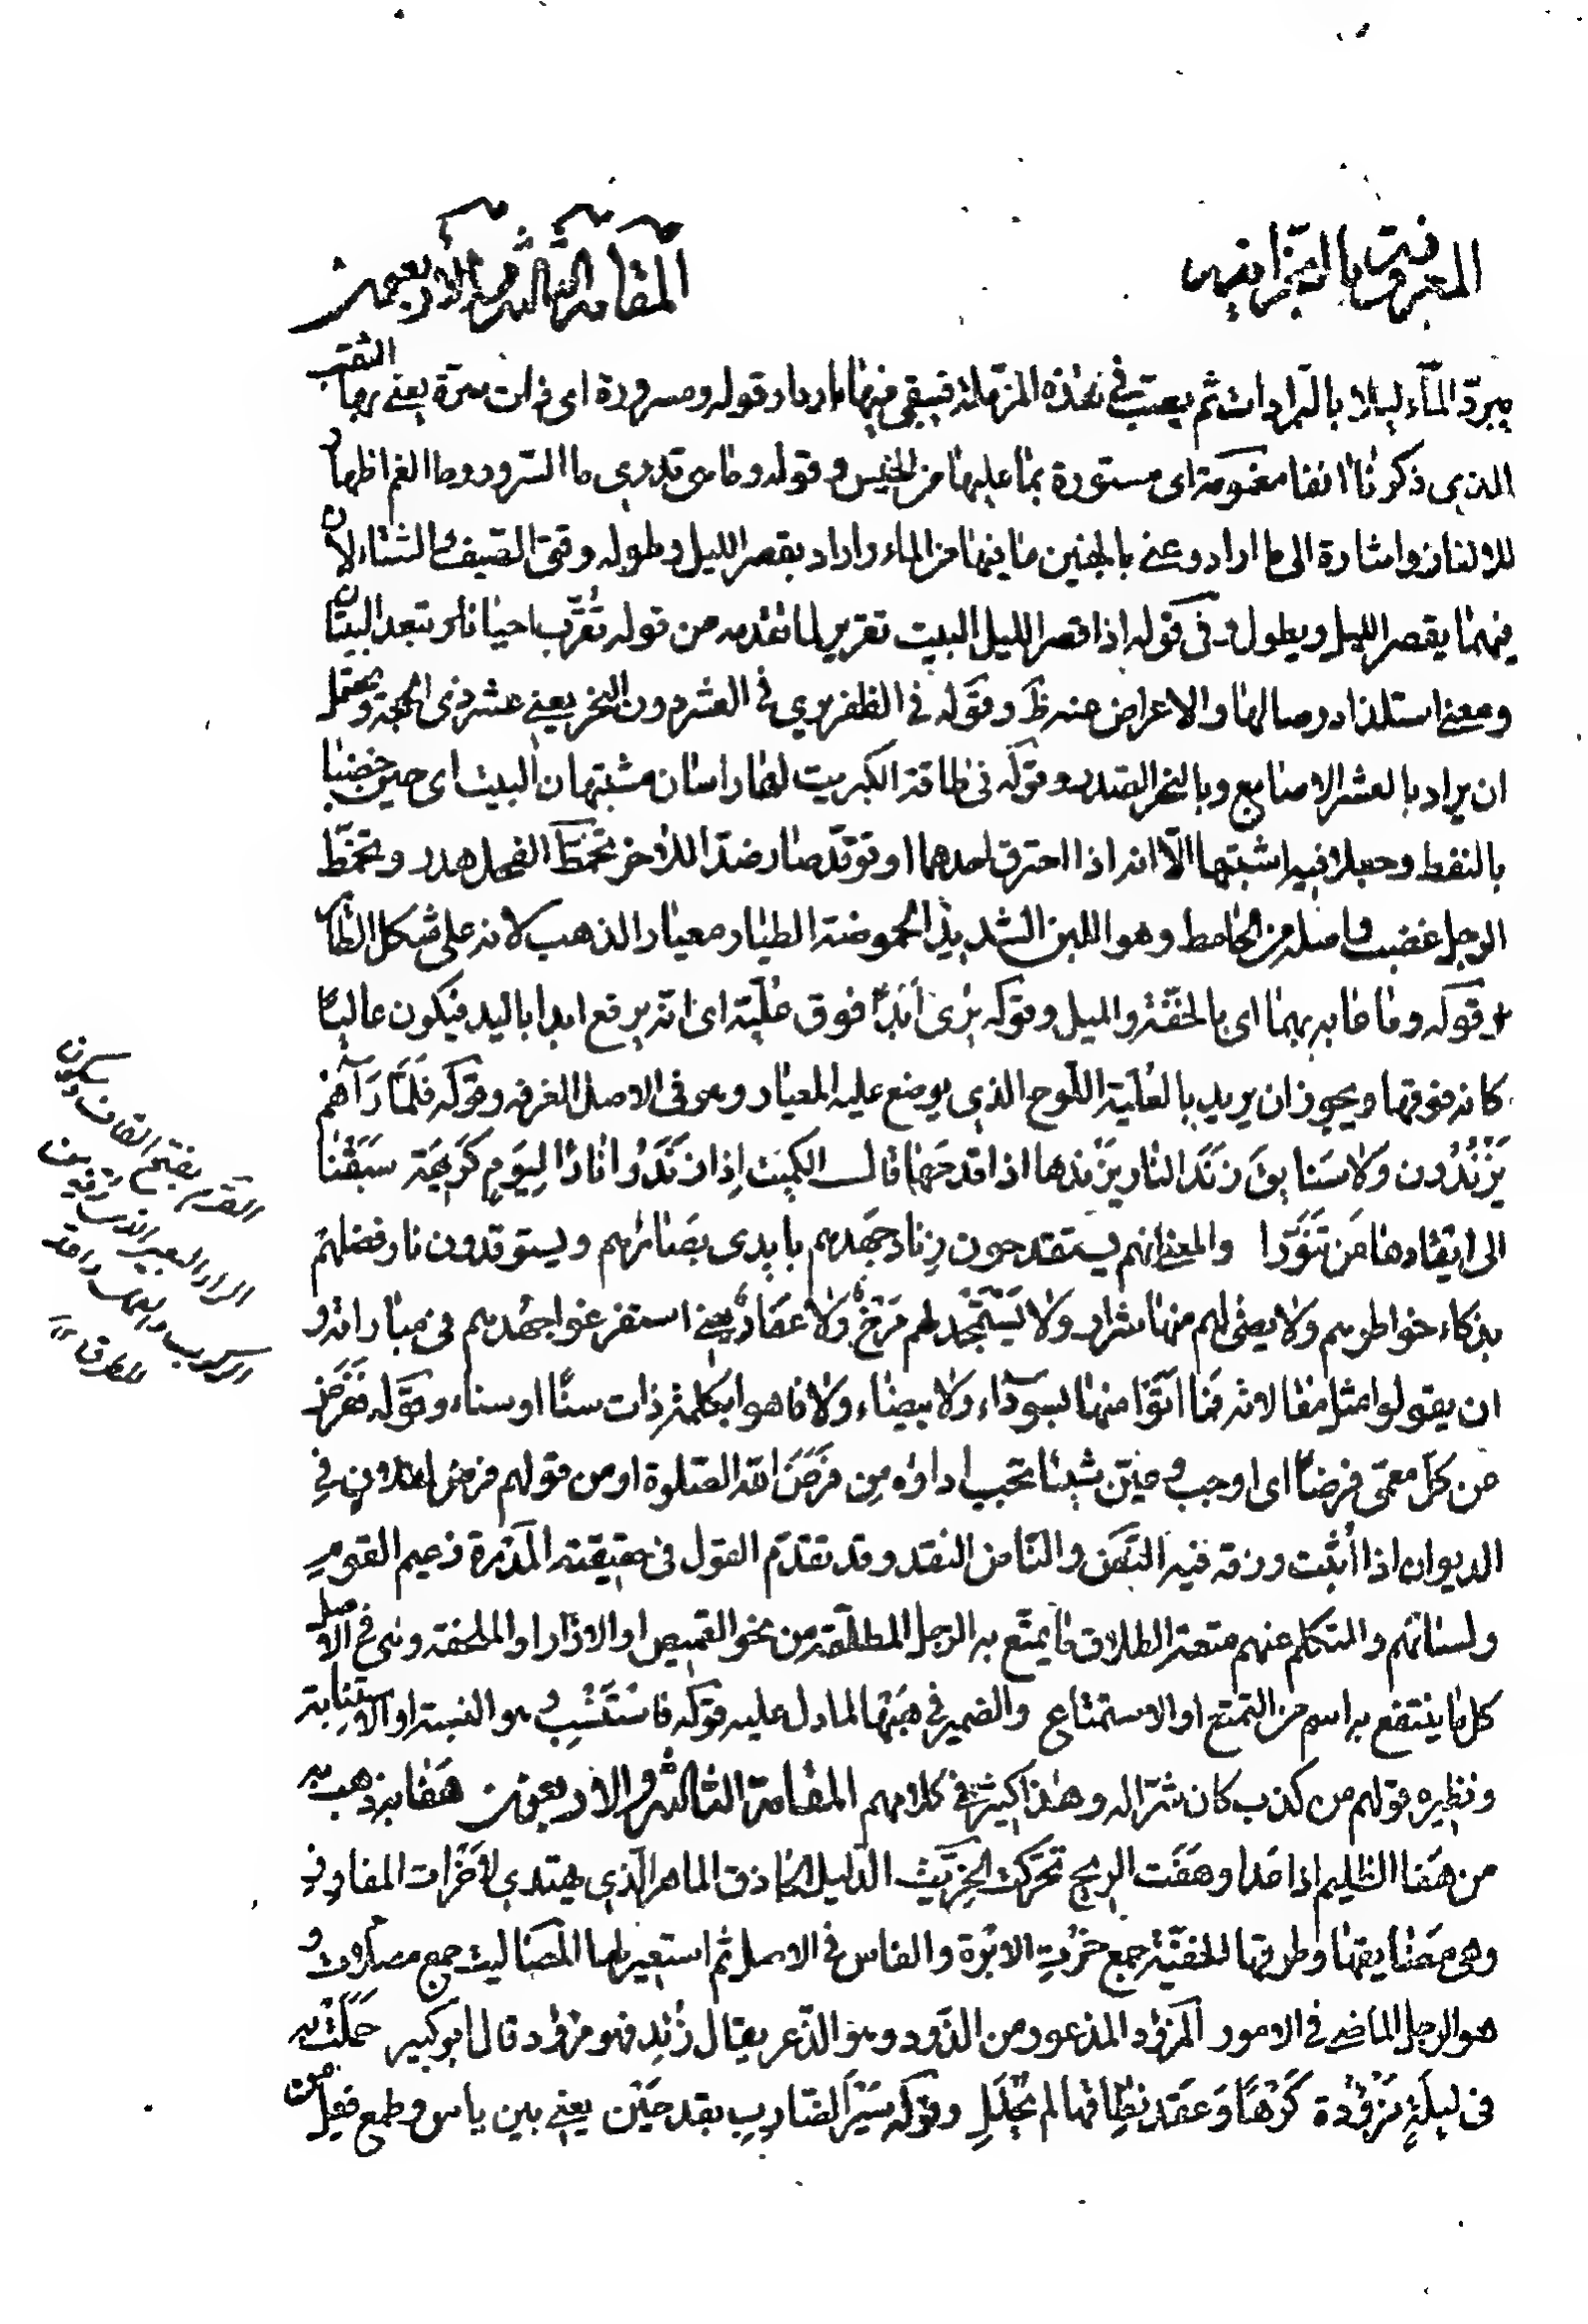 المعروفة بالنجرانية
المقامة الثالثة والاربعون
يبرد الماء ليلا بالبرادات ثم يصب في هذه المزملة فيبقى فيها باردا وقوله ومسرورة اى ذات سرة يعنى بها الثقب
الذى ذكرناه انفا مغمومة اى مستورة بما عليها من الخيس وقوله وما هى تدرى ما السرور وما الغم اظهار
للالغاز واشارة الى ما اراد وعنى بالجنين ما فيها من الماء واراد بقصر الليل وطوله وقتى الصيف والشتاء لان
فيهما يقصر الليل ويطول وفى قوله اذا قصر الليل البيت تقرير لما تقدمه من قوله تقرب احيانا وتبعد البيتان
ومعنى استلذاذ وصالها والاعراض عنه ظ وقوله فى الظفر يرى فى العشر دون النحر يعنى عشر ذى الحجة ويحتمل
ان يراد بالعشر الاصابع وبالنحر الصدر وقوله فى طاقة الكبريت لها راسان مشتبهان البيت اى حين خضبا
بالنفط وجعلا فيه اشتبها الا انه اذا احترق احدهما او توقد صار ضدا للاخر تخمط الفحل هدر وتخمط
الرجل غضب واصله من الخامط وهو اللبن الشديد الحموضة الطيار معيار الذهب لانه على شكل الطائر
وقوله وما عابه بهما اى بالخفة والميل وقوله يرى ابدا فوق علية اى انه يرفع ابدا باليد فيكون عاليا
كانه فوقها ويجوز ان يريد بالعلية اللوح الذى يوضع عليه المعيار وهو فى الاصل الغرفة وقوله فلما رآهم
يزندون ولا سنا يق زند النار يزندها اذا قدحها قال الكميت اذا زندوا نارا ليوم كريهة سبقنا
الى ايقادها من تنورا والمعنى انهم يستقدحون زناد جهدهم بايدى بصائرهم ويستوقدون نار فضلهم
بذكاء خواطرهم ولا يضئ لهم منها شرار ولا يستمجد لهم مرخ ولا عفار يعنى استفرغوا جهدهم فى مباراته و
ان يقولوا مثل مقالاته فما اتوا منها بسوداء ولا بيضاء ولا فاهوا بكلمة ذات سنا او سناء وقوله ففرض
من كل معمى فرضا اى اوجب وعين شيئا تحب اداوه من فرض الله الصلوة او من قولهم فرض لفلان فى
الديوان اذا اثبت ورزقه فيه النض والناض النقد وقد تقدم القول فى حقيقته المدره زعيم القوم
ولسانهم والمتكلم عنهم متعة الطلاق ما يمتع به الرجل المطلقة من نحو القميص او الازار او الملحفة وهى فى الاصل
كل ما ينتفع به اسم من التمتع او الاستمتاع والضمير فى هبتها لما دل عليه قوله فاستنسب وهو النسبة او الاستنابة
ونظيره قولهم من كذب كان شرا له وهذا كثير فى كلامهم المقامة الثالثة والاربعون هفا به ذهب به
من هفا الظليم اذا عدا وهفت الريح تحركت الخريت الدليل الحاذق الماهر الذى يهتدى لاخرات المفاوز
وهى مضايقها وطرقها الخفية جمع خرت الابرة والفاس فى الاصل ثم استعير لها المصاليت جمع مصلات و
هو الرجل الماضى فى الامور المزؤد المذعور من الزؤد وهو الذعر يقال زئد فهو مزؤد قال ابو كبير حملت به
فى ليلة مزؤدة كرها وعقد نطاقها لم يحلل وقوله سير الضارب بقدحين يعنى بين ياس وطمع فعيل من
القرم بفتح القاف وسكون